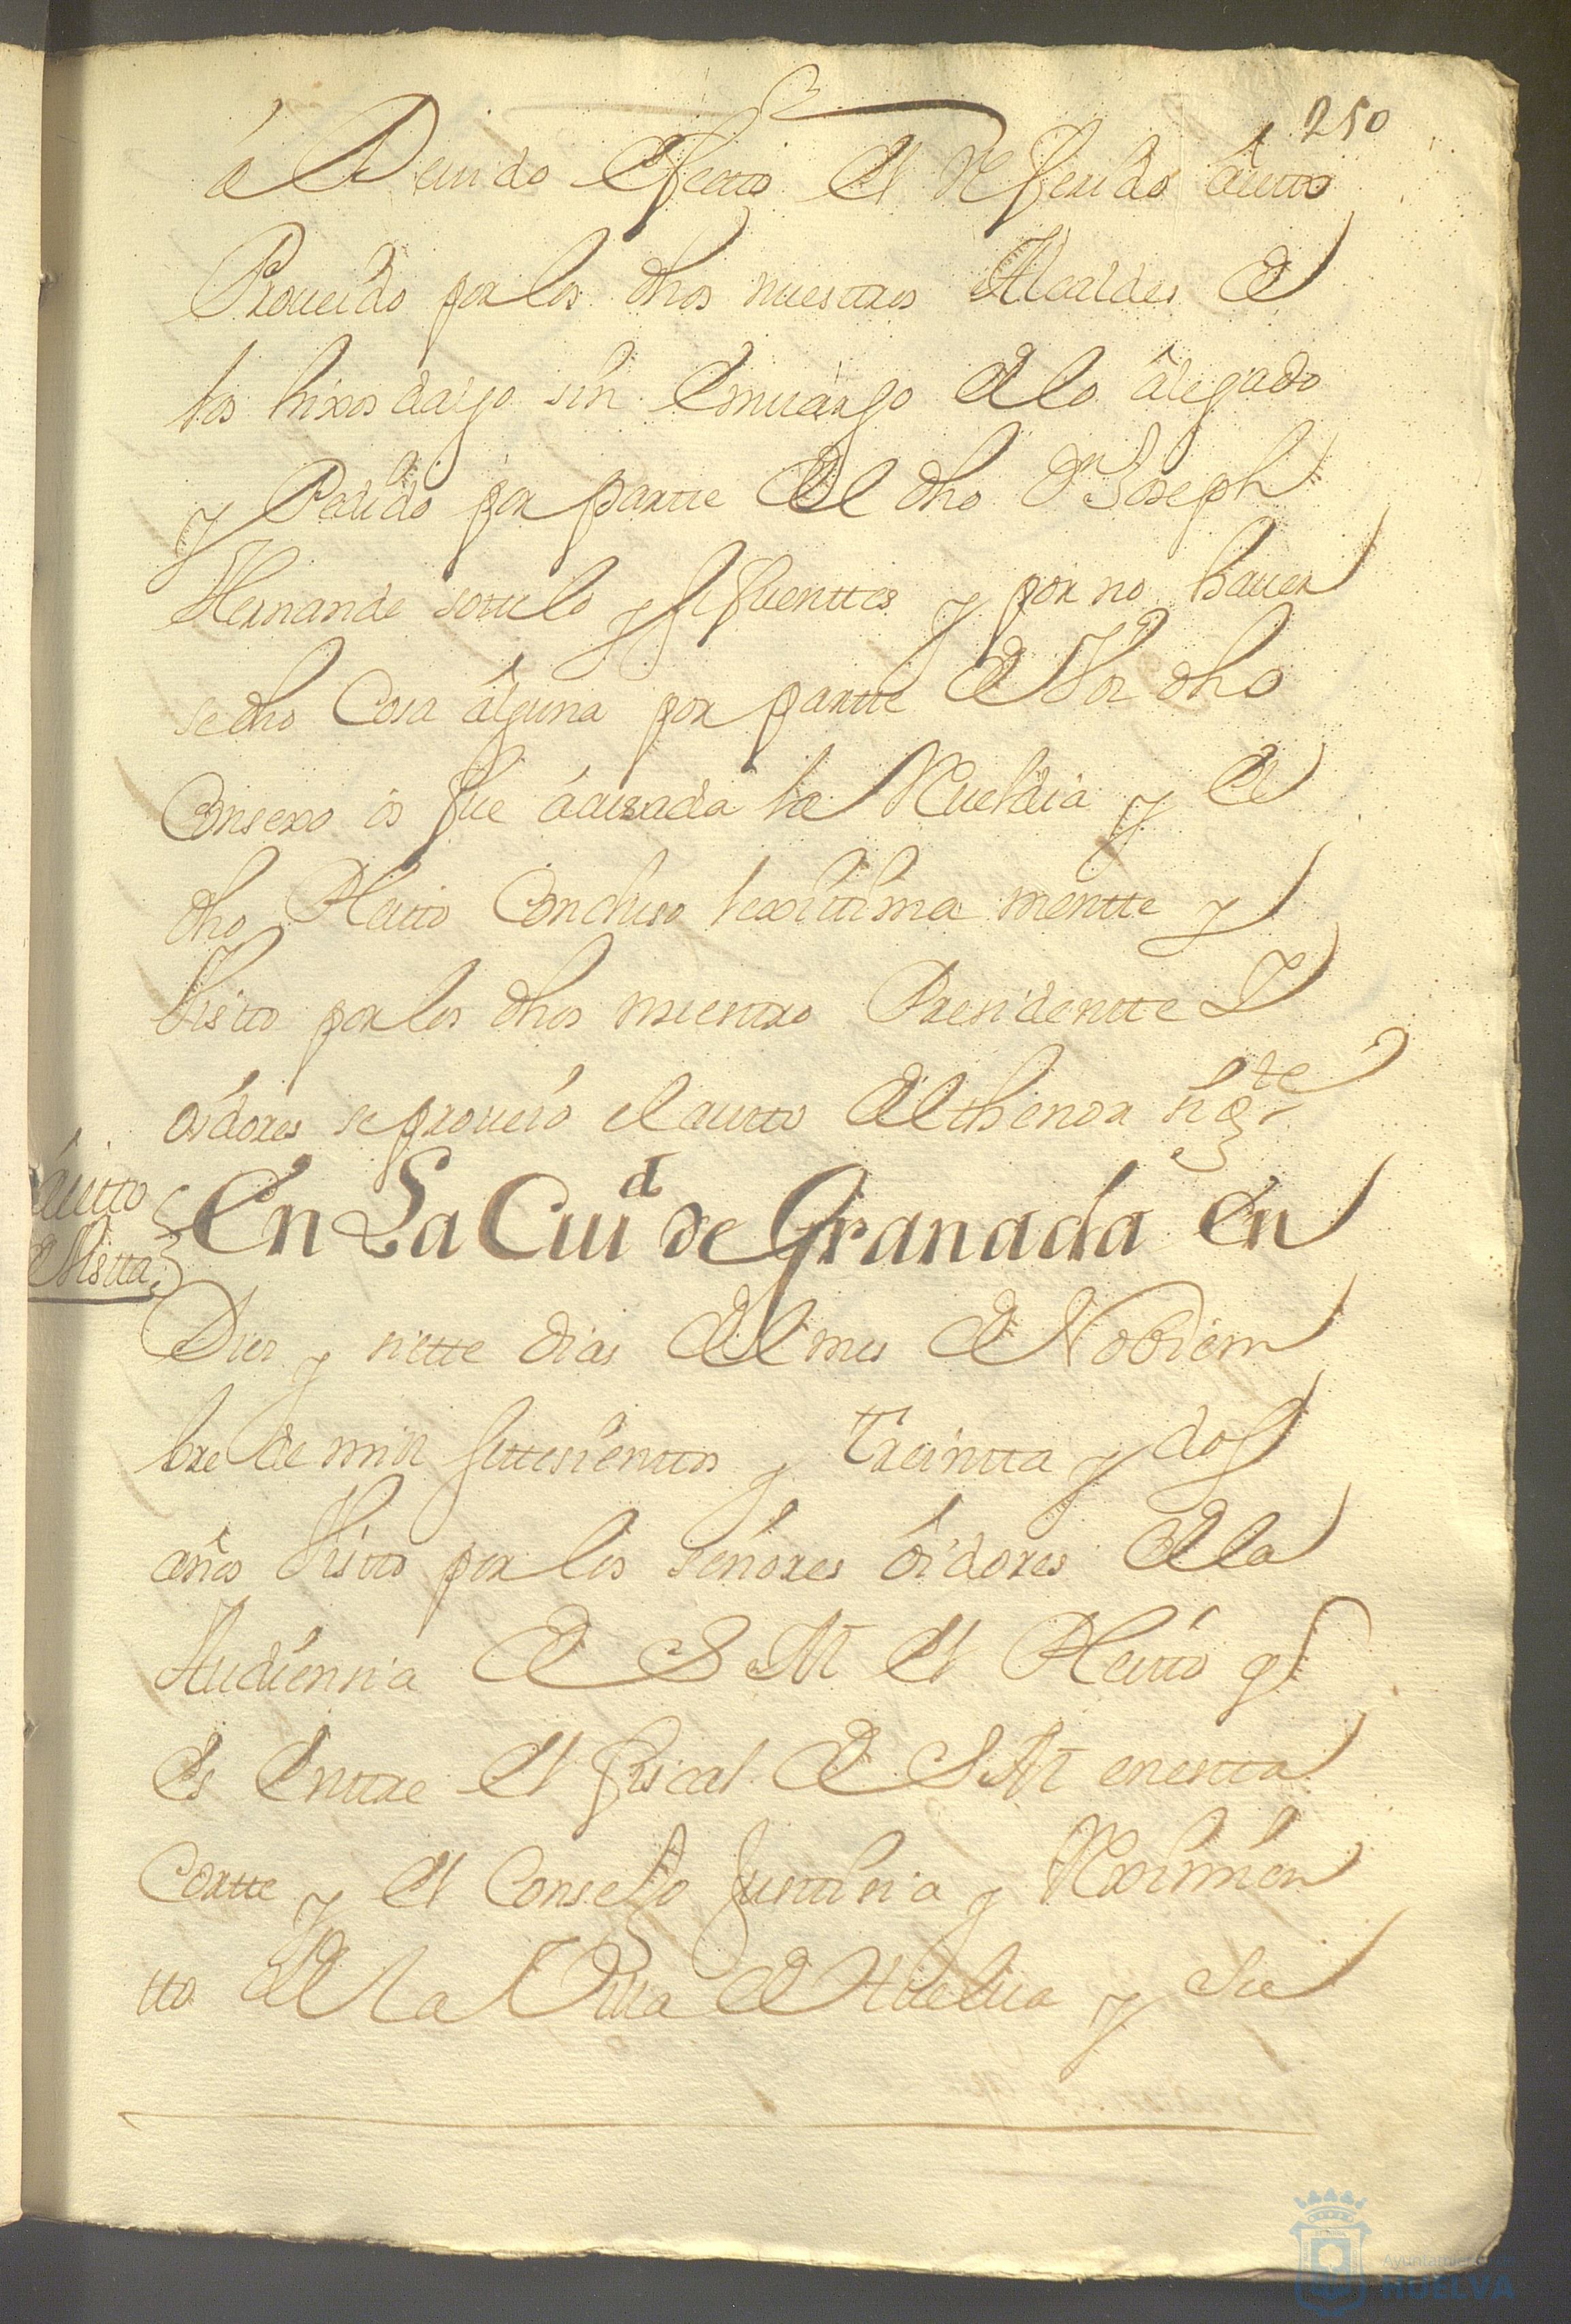 250
á Deuido efectto el Referido áutto
Proueido por los dhos nuestros Alcaldes de
los hixosdalgo sin émuargo de lo álegado
y Pedido por partte del dho Dn Joseph
Hernande sotelo y sifuenttes y por no hauer
se dho Cosa álguna por partte de Vos dho
Consexo os fue ácusada la Reueldia y el
dho Pleitto Concluso lexitima mentte y
Visto por los dhos nuestro Presidentte Y
oidores se proueió el autto del thenor sigte
áutto
de Vistta
En La Ciud de Granada en
Diez y siette dias del mes de Nobiem
bre de mill settesienttos y treintta y dos
años Visto por los señores óidores de la
Audiensia de S M el Pleitto q
és éntre el fiscal de S M en estta
Cortte y el Consejo Justisia y Reximien
tto de la Villa de Huelua y Su
Ayuntamiento de
HUELVA